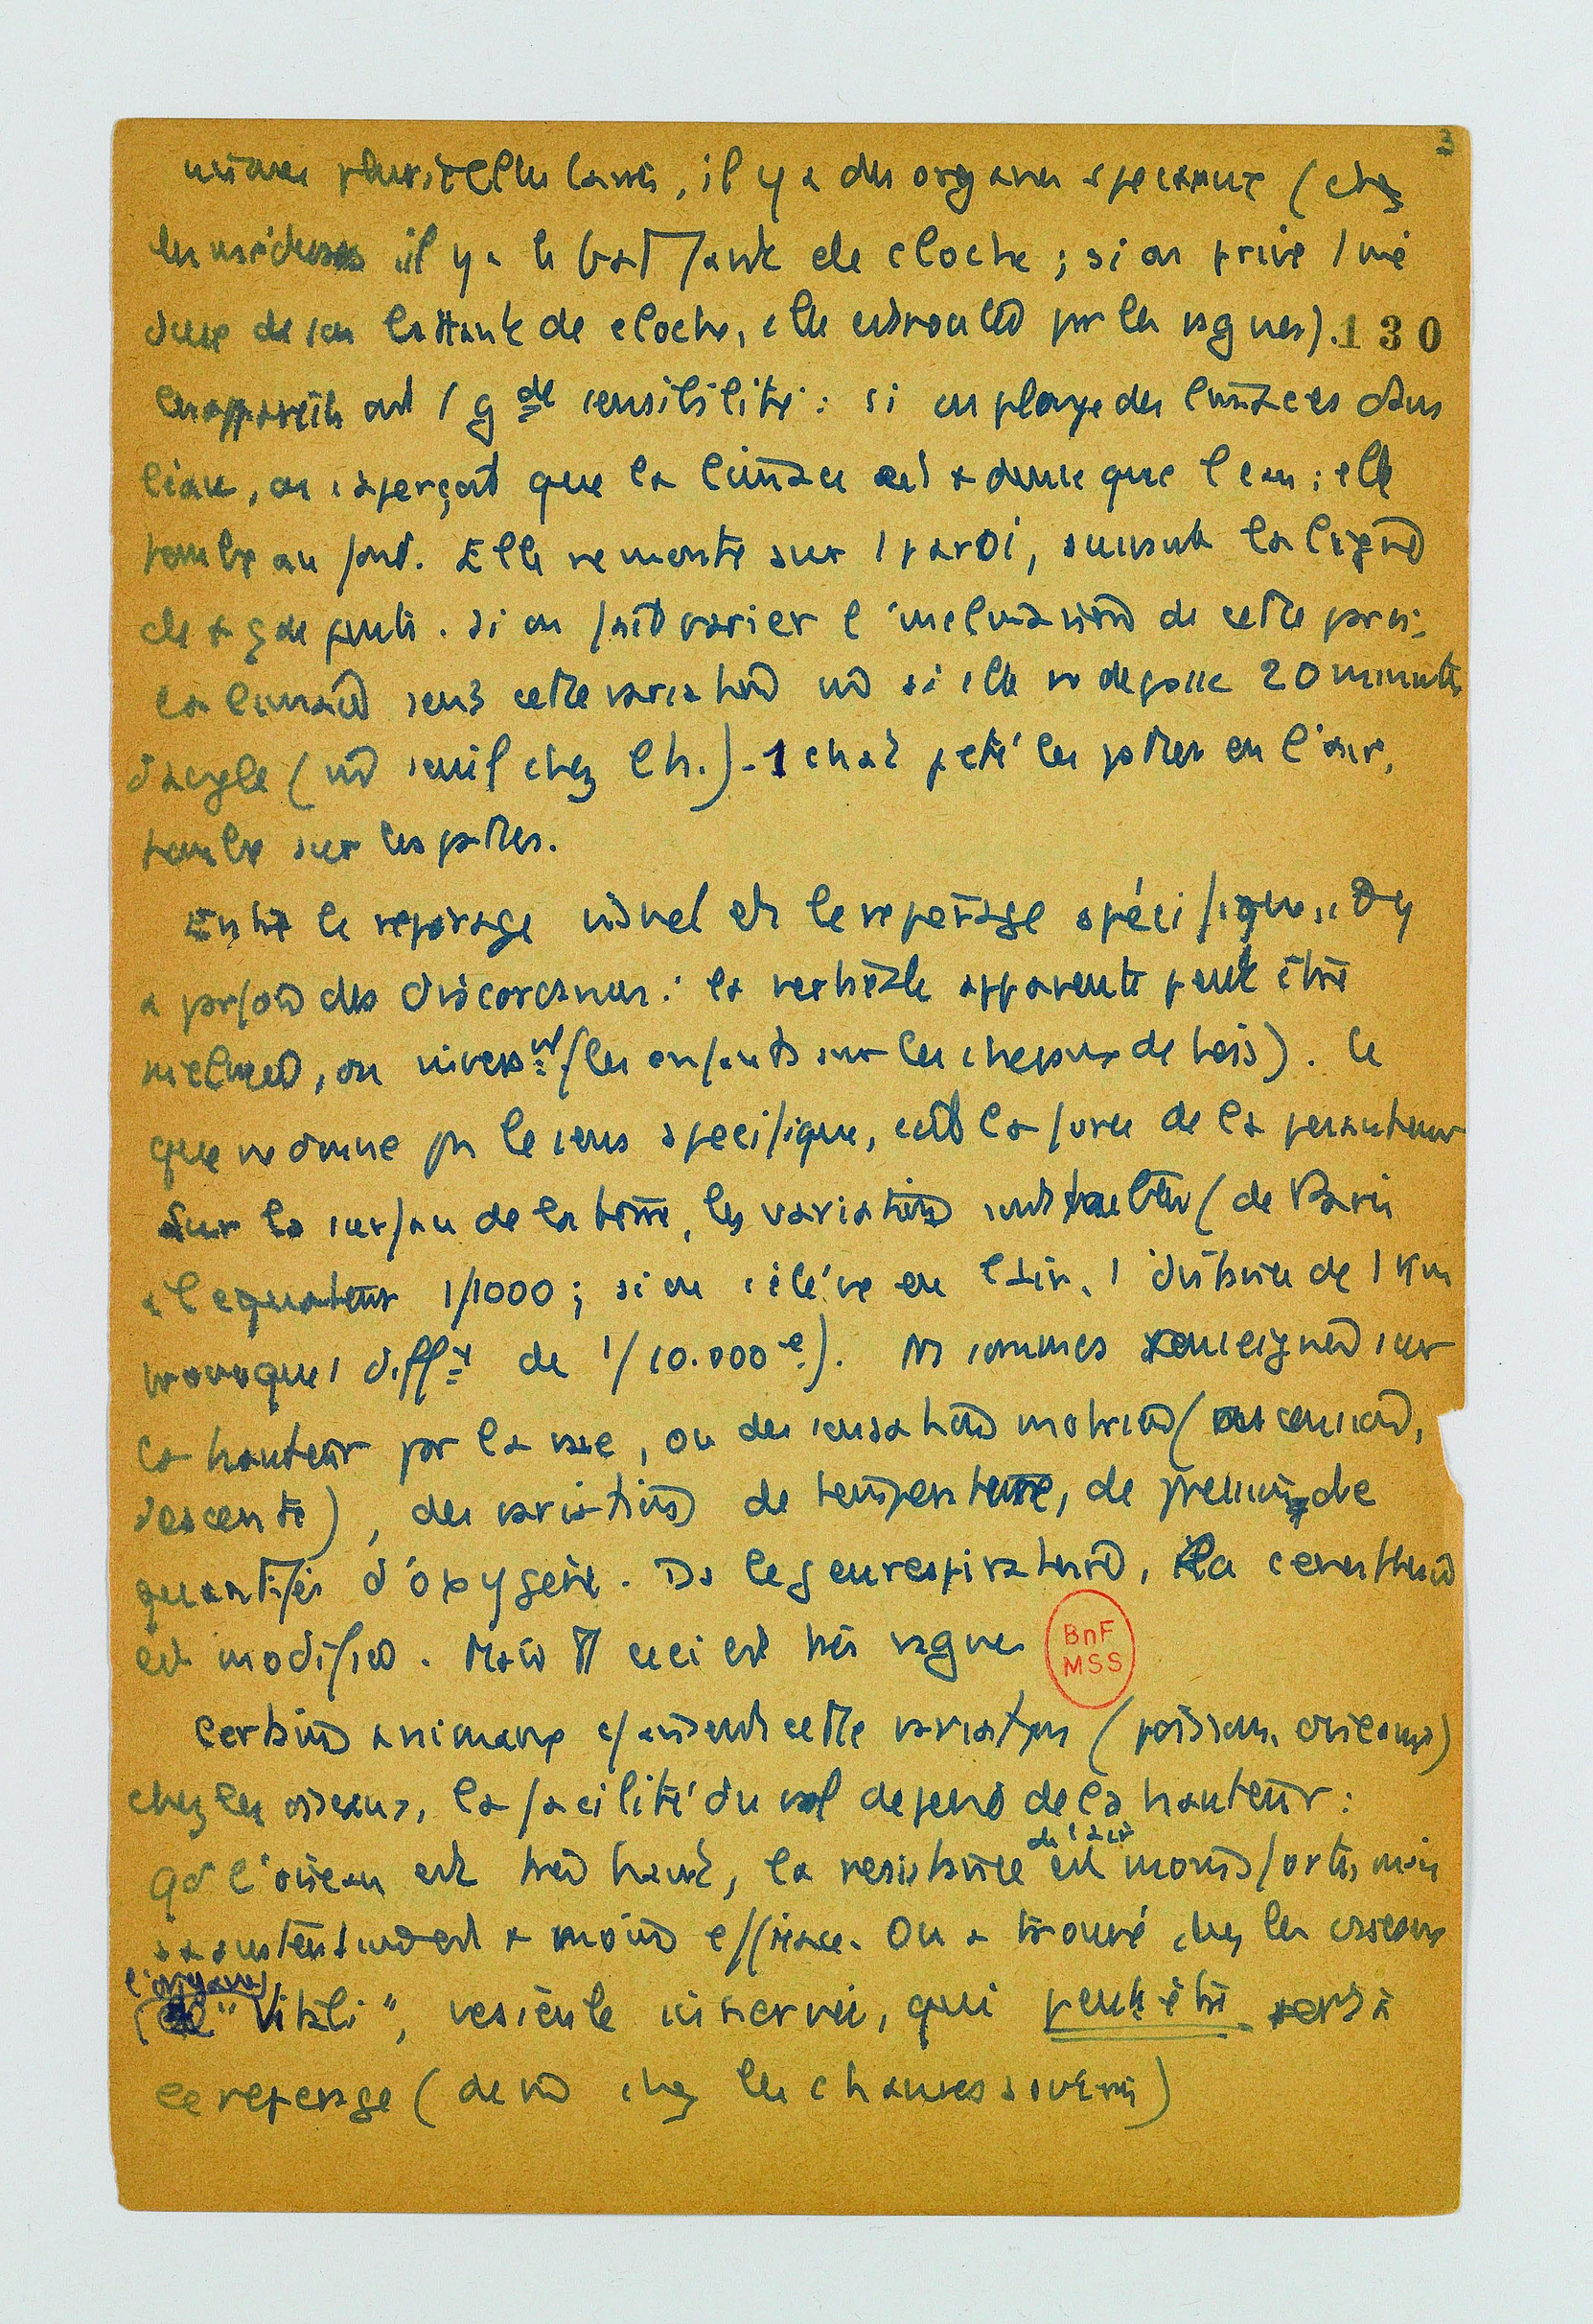 3
pluricellulaires, il y a des organes speciaux (chez
les méduses il y a le battant de cloche ; si on prive 1 mé
duse de son battant de cloche, elle est roulée par les vagues). 130
Ces appareils ont 1 gde sensibilité : si on plonge des limaces dans
l'eau, on s'aperçoit que la limace est + dense que l'eau ; elle
tombe au fond. Elle remonte sur 1 paroi, suivant la ligne
de + gde pente. si on fait varier l'inclinaison de cette paroi,
la limace sent cette variation si elle depasse 20 minutes
d'angle ( seuil chez l'h.) - 1 chat jeté les pattes en l'air,
tombe sur les pattes.
Entre le reperage visuel et le reperage spécifique, il y
a parfois des discordances : la verticale apparente peut être
inclinée, ou inversmt (les enfants sur les chevaux de bois). Ce
que ne donne pas le sens specifique, c'est la force de la pesanteur
Sur la surface de la terre, les variations sont faibles (de Paris
a l'equateur 1/1000 ; si on s'élève en l'air, 1 distance de 1 Km
provoque 1 diff de 1/10.000e). Ns sommes renseignés sur
la hauteur par la vue, ou des sensations motrices (ascension,
descente), des variations de temperature, de pression, de
quantités d'oxygène. Ds le gene respiratoire, la cenesthésie
est modifiée. Mais tt ceci est très vague
BnF
MSS
Certains animaux cette variation (poissons, oiseaux)
chez les oiseaux, la facilité du vol depend de la hauteur :
de l'air
Qd l'oiseau est très haut, la resistance est moins forte, mais
sa est + moins efficace. On a trouvé chez les oiseaux
l'organe
"Vitali", vesicule innervée, qui peut être sert à
ce reperage (de m chez les chauves souris)